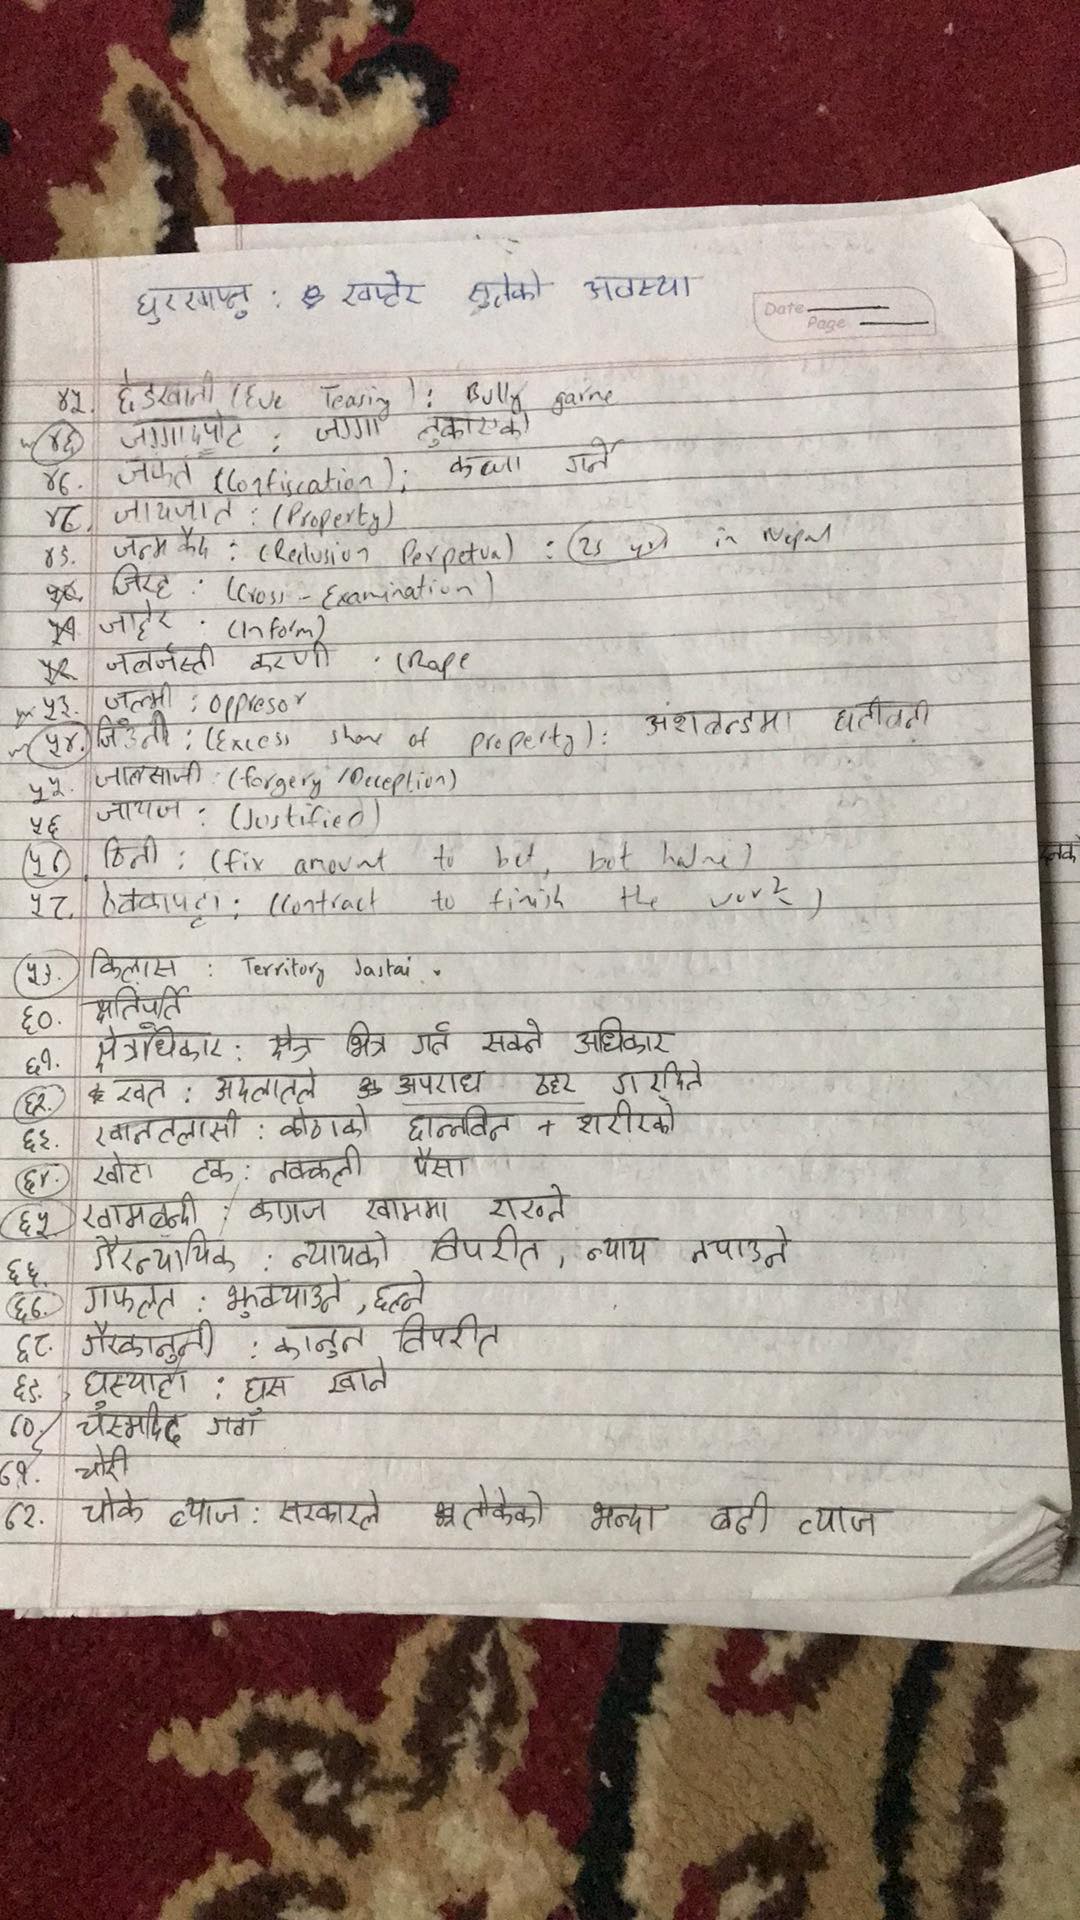 घुरखाप्नु : खप्टेर सुतेको अवस्था
Date
Page
४५. छेडखानी (Eve Teasing) : Bully garne
४६. जग्गादपोट : जग्गा लुकाएको
४७. जफत (Confiscation) : कब्जा गर्ने
४८. जायजात : (Property)
४९. जन्मकैद : (Reclusion Perpetua) : 25 yrs in Nepal
५०. जिरह : (Cross-Examination)
५१ जाहेर : (Inform)
५२ जबर्जस्ती करणी : (Rape
५३. जल्मी : Oppresor
५४. जिउनी : (Excess share of property) : अंशबन्डामा घटीबढी
५५. जालसाजी : (forgery / Deception)
५६ जायज : (Justified)
५७ ठिनी : (fix amount to bet, bot halne)
५८ ठेक्कापट्टा : (Contract to finish the work)
५९. किलास : Territory Jastai.
६०. क्षतिपूर्ति
६१. क्षेत्राधिकार : क्षेत्र भित्र गर्न सक्ने अधिकार
६२. खत : अदालतले अपराध ठहर गरिदिने
६३. खानतलासी : कोठाको छानविन + शरीरको
६४. खोटा टक : नक्कली पैसा
६५ खामबन्दी : कागज खाममा राख्ने
६६. गैरन्यायिक : न्यायको विपरीत, न्याय नपाउने
६७. गफलत : झुक्याउने, छल्ने
६८. गैरकानुनी : कानुन विपरीत
६९. घुस्याहा : घुस खाने
७०. चस्मदिद गवाह
७१. चोरी
७२. चोके ब्याज : सरकारले तोकेको भन्दा बढी ब्याज